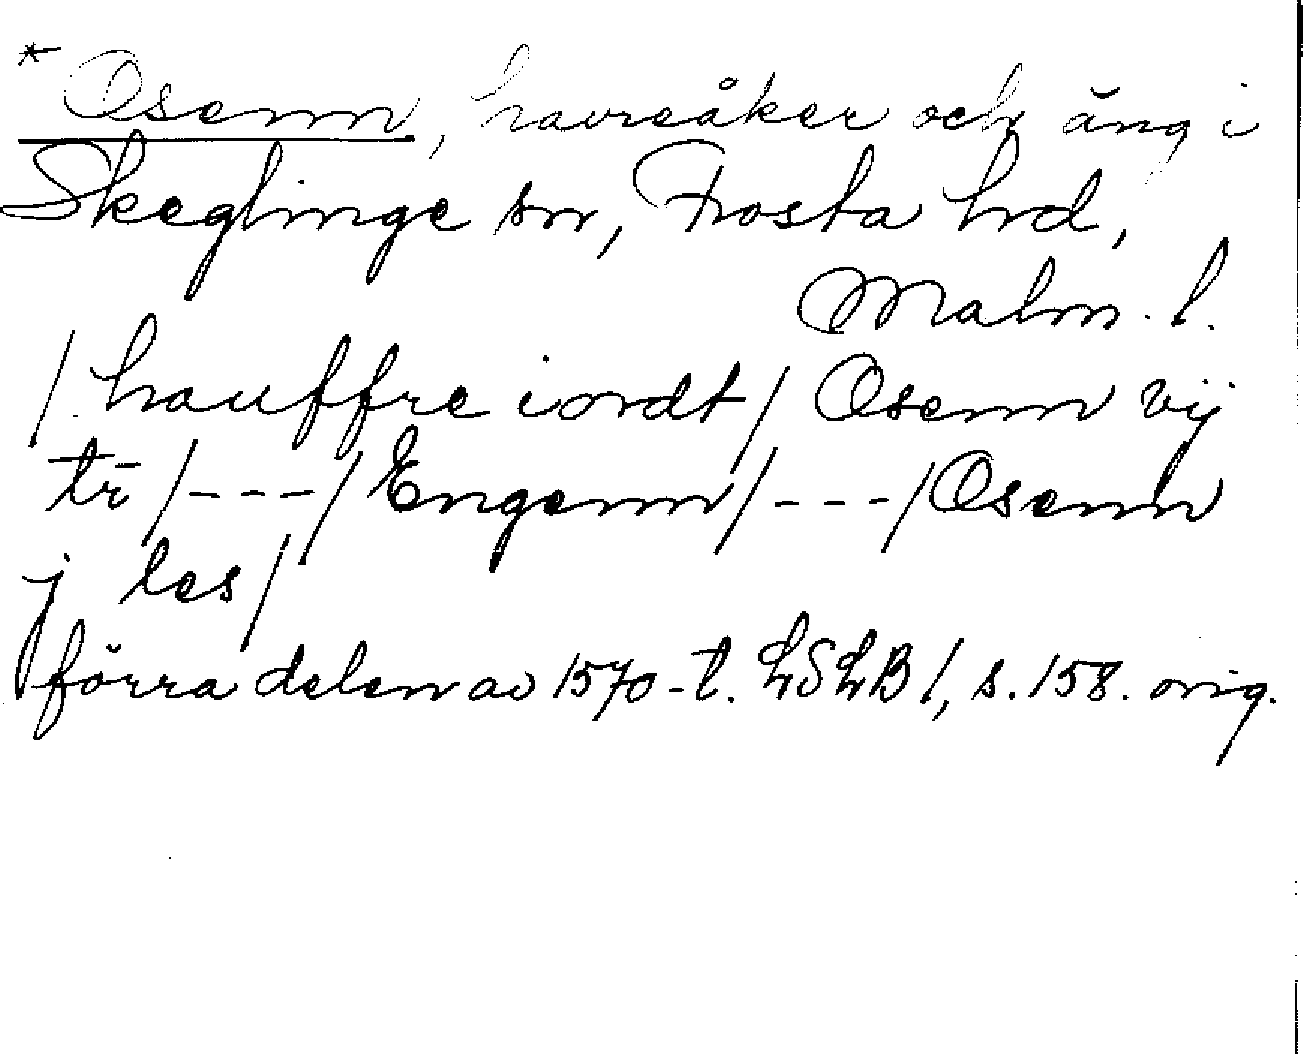 * Osenn, havreåker och äng i
Skeglinge sn, Frosta hd,
Malm. l.
/. hauffre iordt / Osenn vij
tr̄ /---/ Engenn /---/ Osenn
j les /
förra delen av 1570-t. LSLB 1, s. 158. orig.